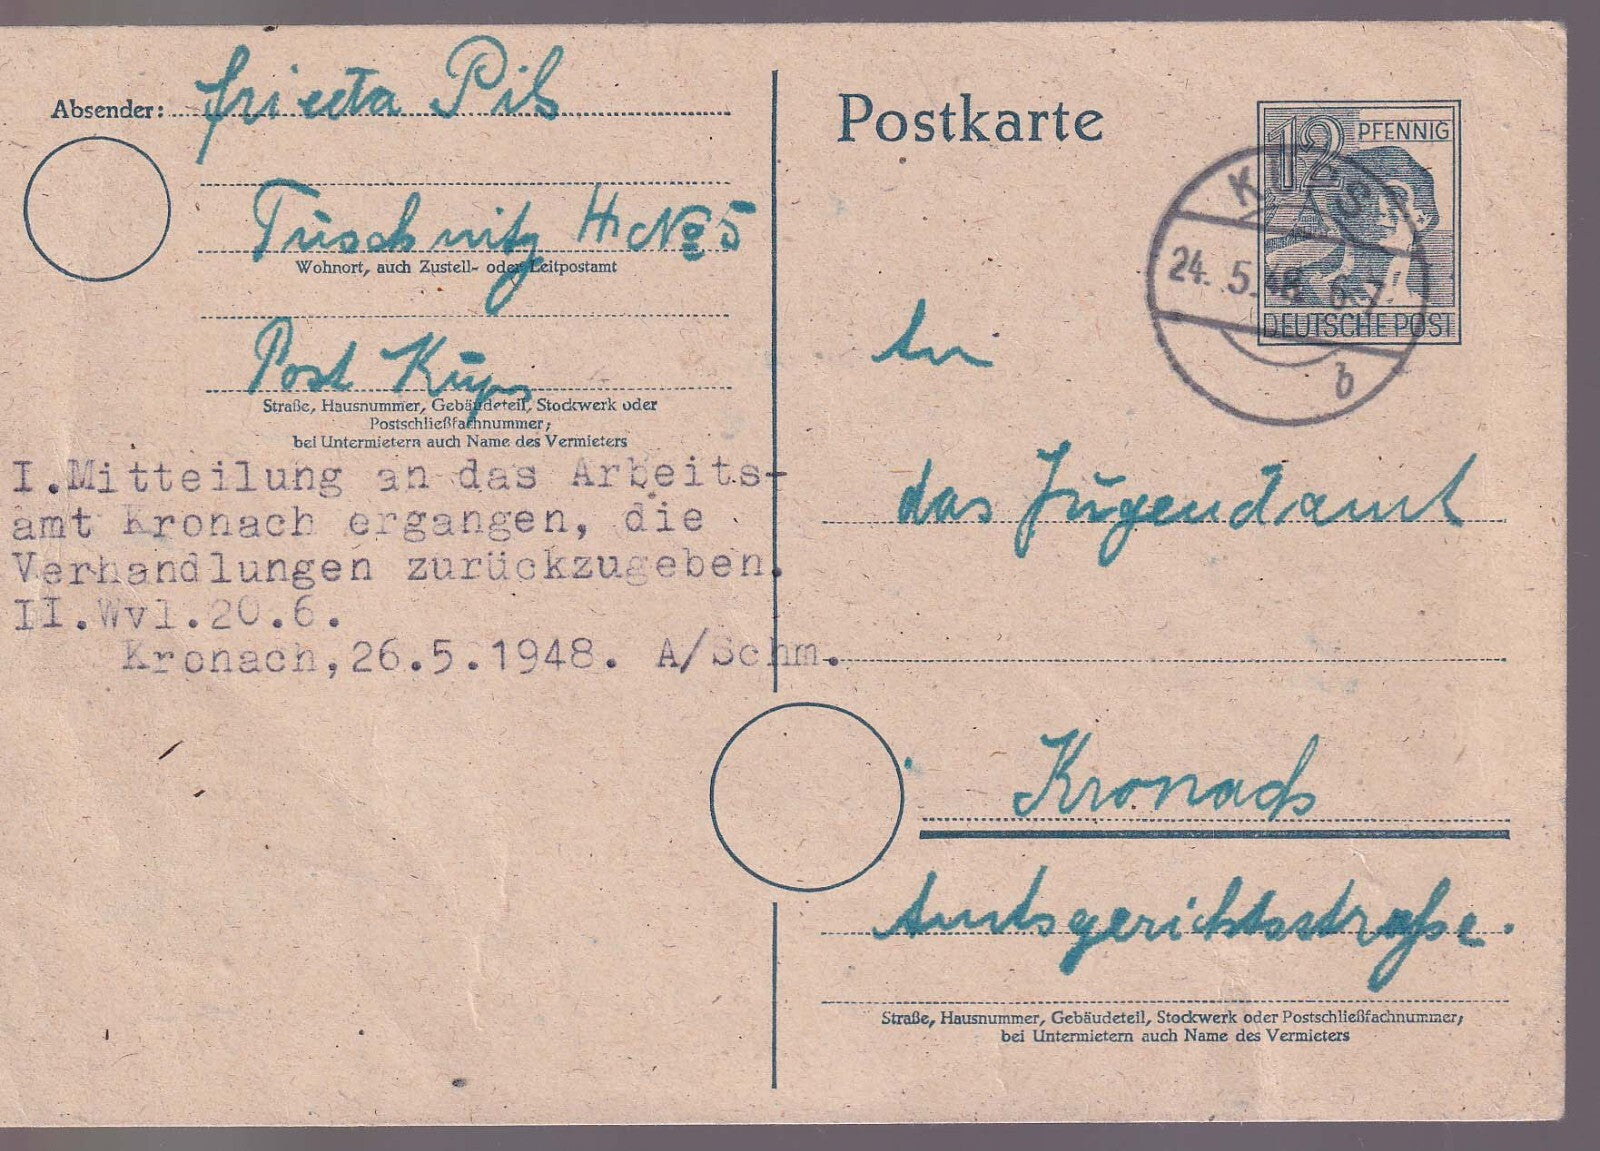 Absender: Frieda Pils
Tüschnitz H. No 5
Wohnort, auch Zustell- oder Leitpostamt
Post Küps
Straße, Hausnummer, Gebäudeteil, Stockwerk oder
Postschließfachnummer;
bei Untermietern auch Name des Vermieters
I.Mitteilung an das Arbeits-
amt Kronach ergangen, die
Verhandlungen zurückzugeben.
II.Wvl.20.6.
Kronach,26.5.1948. A/Schm.
Postkarte
12 PFENNIG
DEUTSCHE POST
KÜPS
24.5.48 6-7
b
An
das Jugendamt
Kronach
Amtsgerichtsstraße.
Straße, Hausnummer, Gebäudeteil, Stockwerk oder Postschließfachnummer;
bei Untermietern auch Name des Vermieters